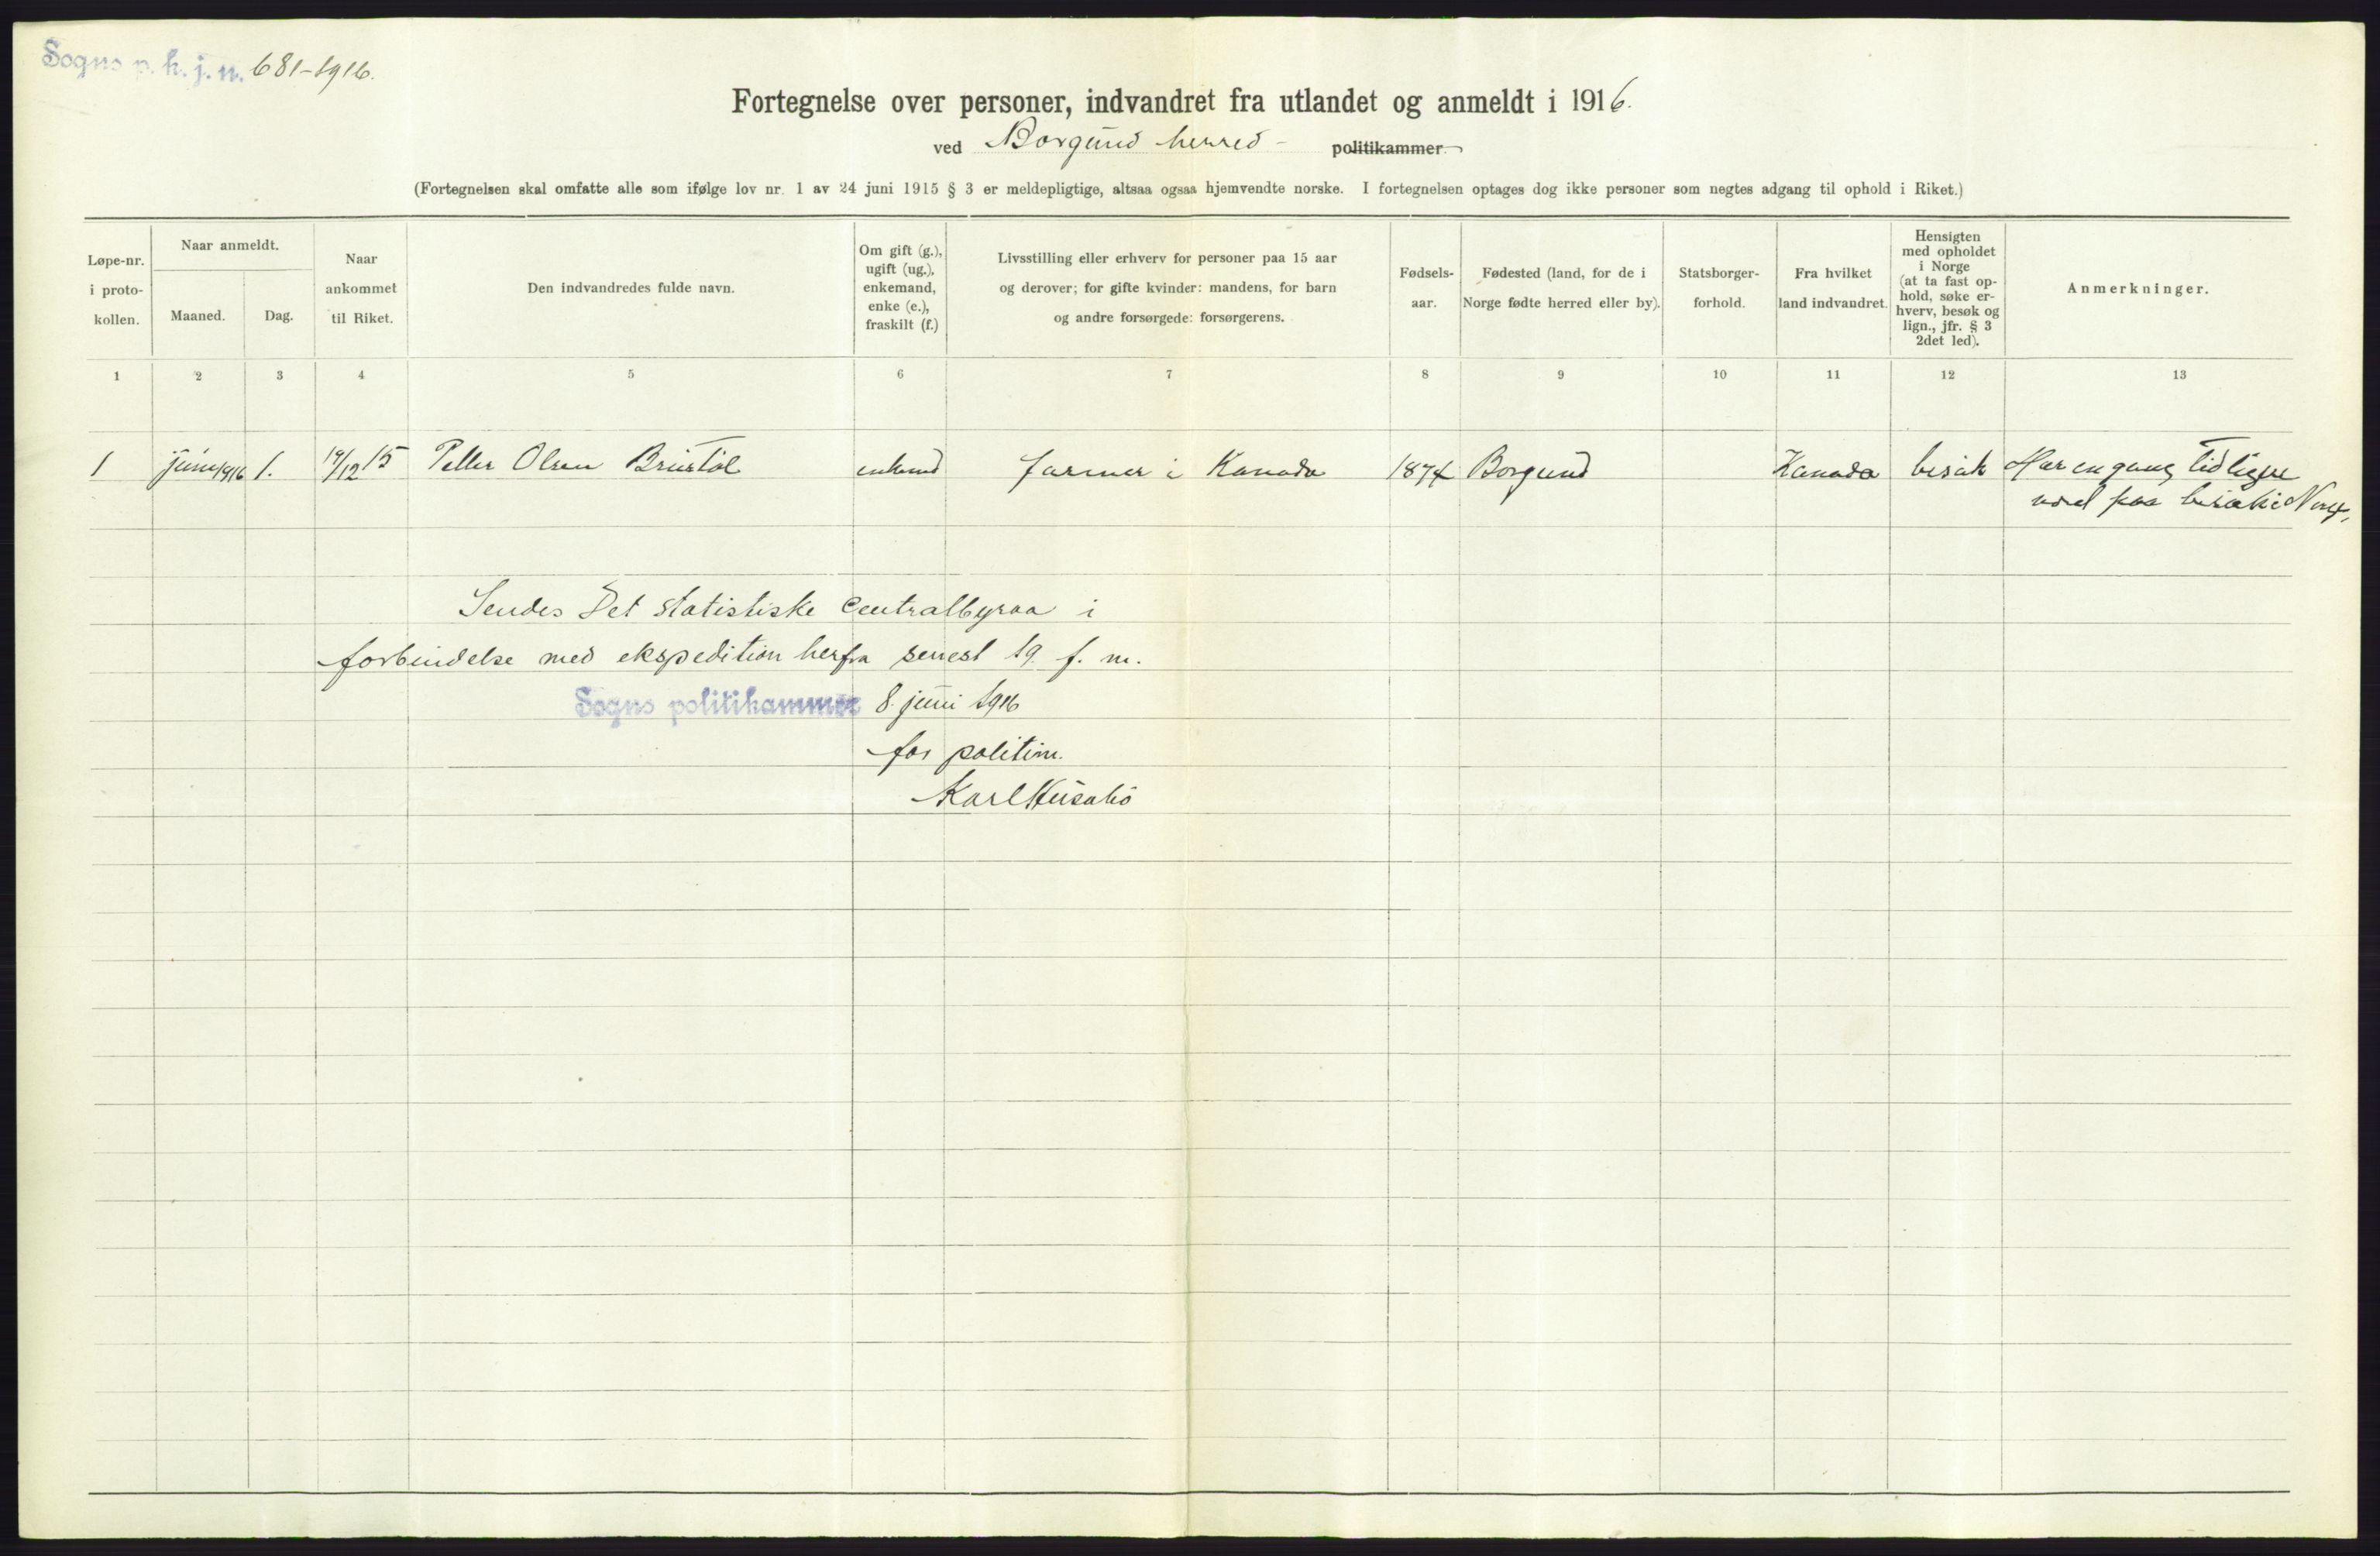 Sogns p. k. j. n. 681-1916.
Fortegnelse over personer, indvandret fra utlandet og anmeldt i 1916.
ved Borgund herred - politikammer
(Fortegnelsen skal omfatte alle som ifølge lov nr. 1 av 24 juni 1915 § 3 er meldepligtige, altsaa ogsaa hjemvendte norske. I fortegnelsen optages dog ikke personer som negtes adgang til ophold i Riket.)
Løpe-nr.
i proto-
kollen.
Naar anmeldt.
Maaned.
Dag.
Naar
ankommet
til Riket.
Den indvandredes fulde navn.
Om gift (g.),
ugift (ug.),
enkemand,
enke (e.),
fraskilt (f.)
Livsstilling eller erhverv for personer paa 15 aar
og derover; for gifte kvinder: mandens, for barn
og andre forsørgede: forsørgerens.
Fødsels-
aar.
Fødested (land, for de i
Norge fødte herred eller by).
Statsborger-
forhold.
Fra hvilket
land indvandret.
Hensigten
med opholdet
i Norge
(at ta fast op-
hold, søke er-
hverv, besøk og
lign., jfr. § 3
2det led).
Anmerkninger.
1 2 3 4 5 6 7 8 9 10 11 12 13
1 juni 1916 1. 19/12 15 Petter Olsen Bruståt enkemd farmer i Kanada 1874 Borgund Kanada besøk Har en gang tidligere
været paa besøk i Norge.
Sendes Det statistiske centralbyraa i
forbindelse med ekspedition herfra senest 19. f. m.
Sogns politikammer 8. juni 1916
for politim.
Karl Husabø